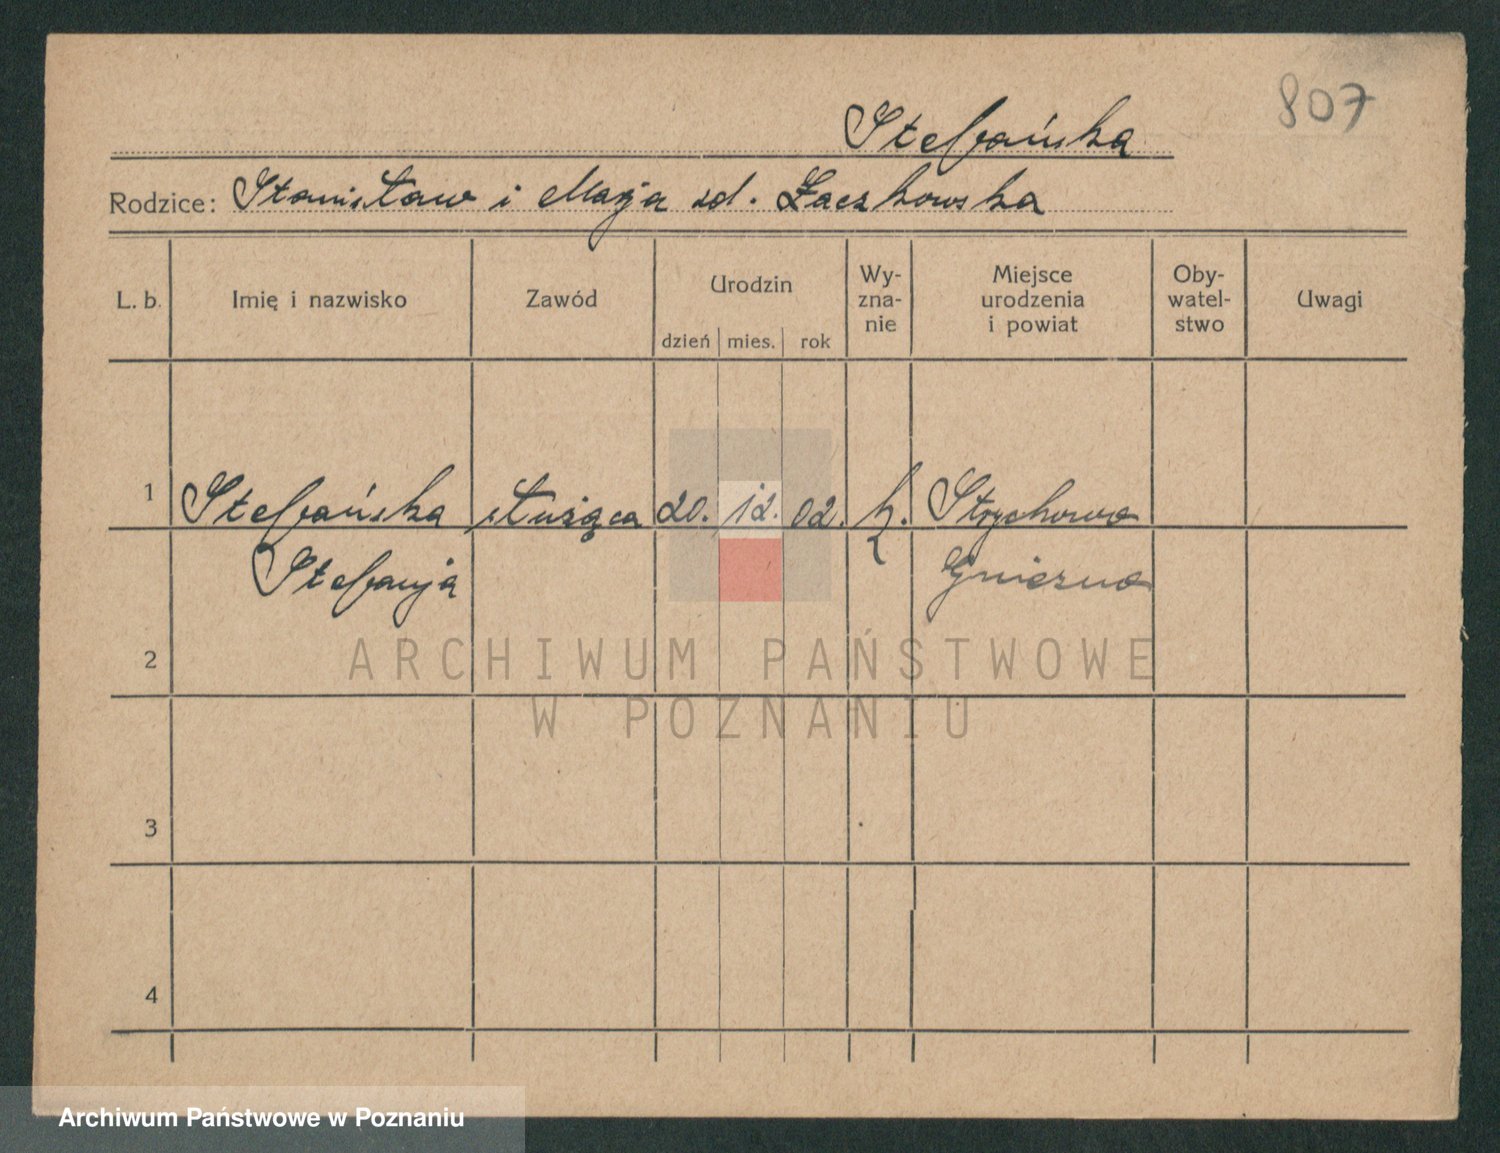 807
Stefańska
Rodzice: Stanisław i Marja zd. Łaczkowska
L. b. Imię i nazwisko Zawód Urodzin dzień mies. rok Wy-zna-nie Miejsce urodzenia i powiat Oby-watel-stwo Uwagi
1 Stefańska służąca 20. 12. 02. k. Strychowo
Stefanja Gniezno
2
ARCHIWUM PAŃSTWOWE
W POZNANIU
3
4
Archiwum Państwowe w Poznaniu